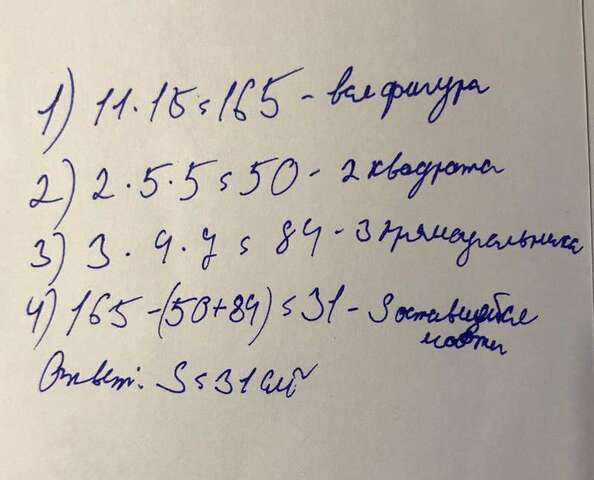 1) 11·15=165 - вся фигура
2) 2·5·5=50 - 2 квадрата
3) 3·4·7=84 - 3 прямоугольника
4) 165-(50+84)=31 - S оставшейся
части
Ответ: S=31 см²